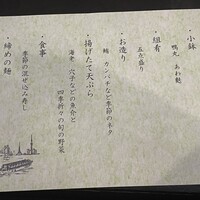 ・小鉢
鴨丸　あわ麩
・組肴
五六盛り
・お造り
鮪　カンパチなど季節のネタ
・揚げたて天ぷら
海老　穴子などの魚介と
四季折々の旬の野菜
・食事
季節の混ぜ込み寿し
・締めの麺